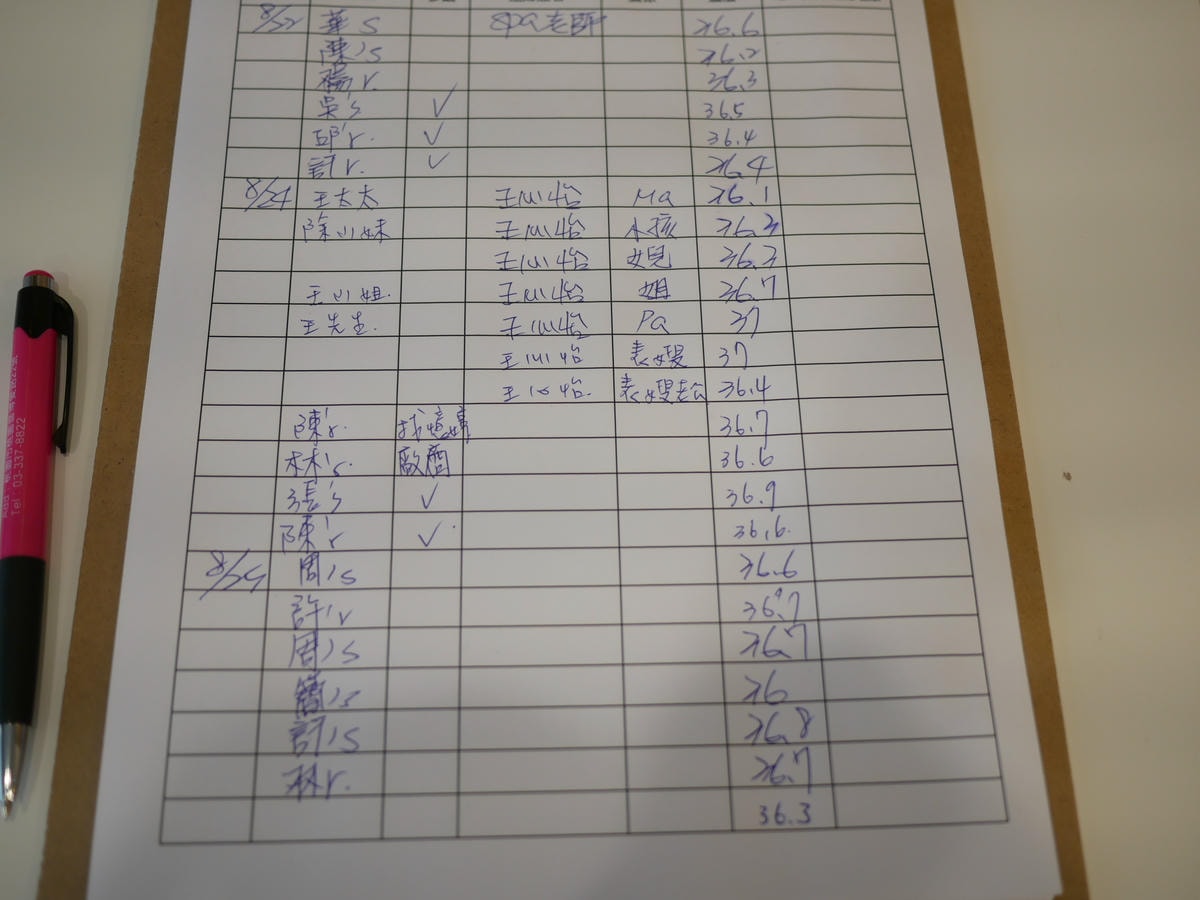 華's SPA老師 36.6
陳's 36.2
楊r. 36.3
吳's ✓ 36.5
邱'r. ✓ 36.4
許r. ✓ 36.4
8/24 王太太 王心怡 Ma 36.1
陳小妹 王心怡 小孩 36.3
王心怡 女兒 36.3
王小姐. 王心怡 姐 36.7
王先生. 王心怡 Pa 37
王心怡 表嫂 37
王心怡 表嫂老公 36.4
陳'r. 36.7
林'r. 廠商 36.6
張's ✓ 36.9
陳'r ✓ 36.6.
8/25 周's 36.6
許'r 36.7
周's 36.7
簡's 36
許's 36.8
林r. 36.7
36.3
Tel : 03-337-8822